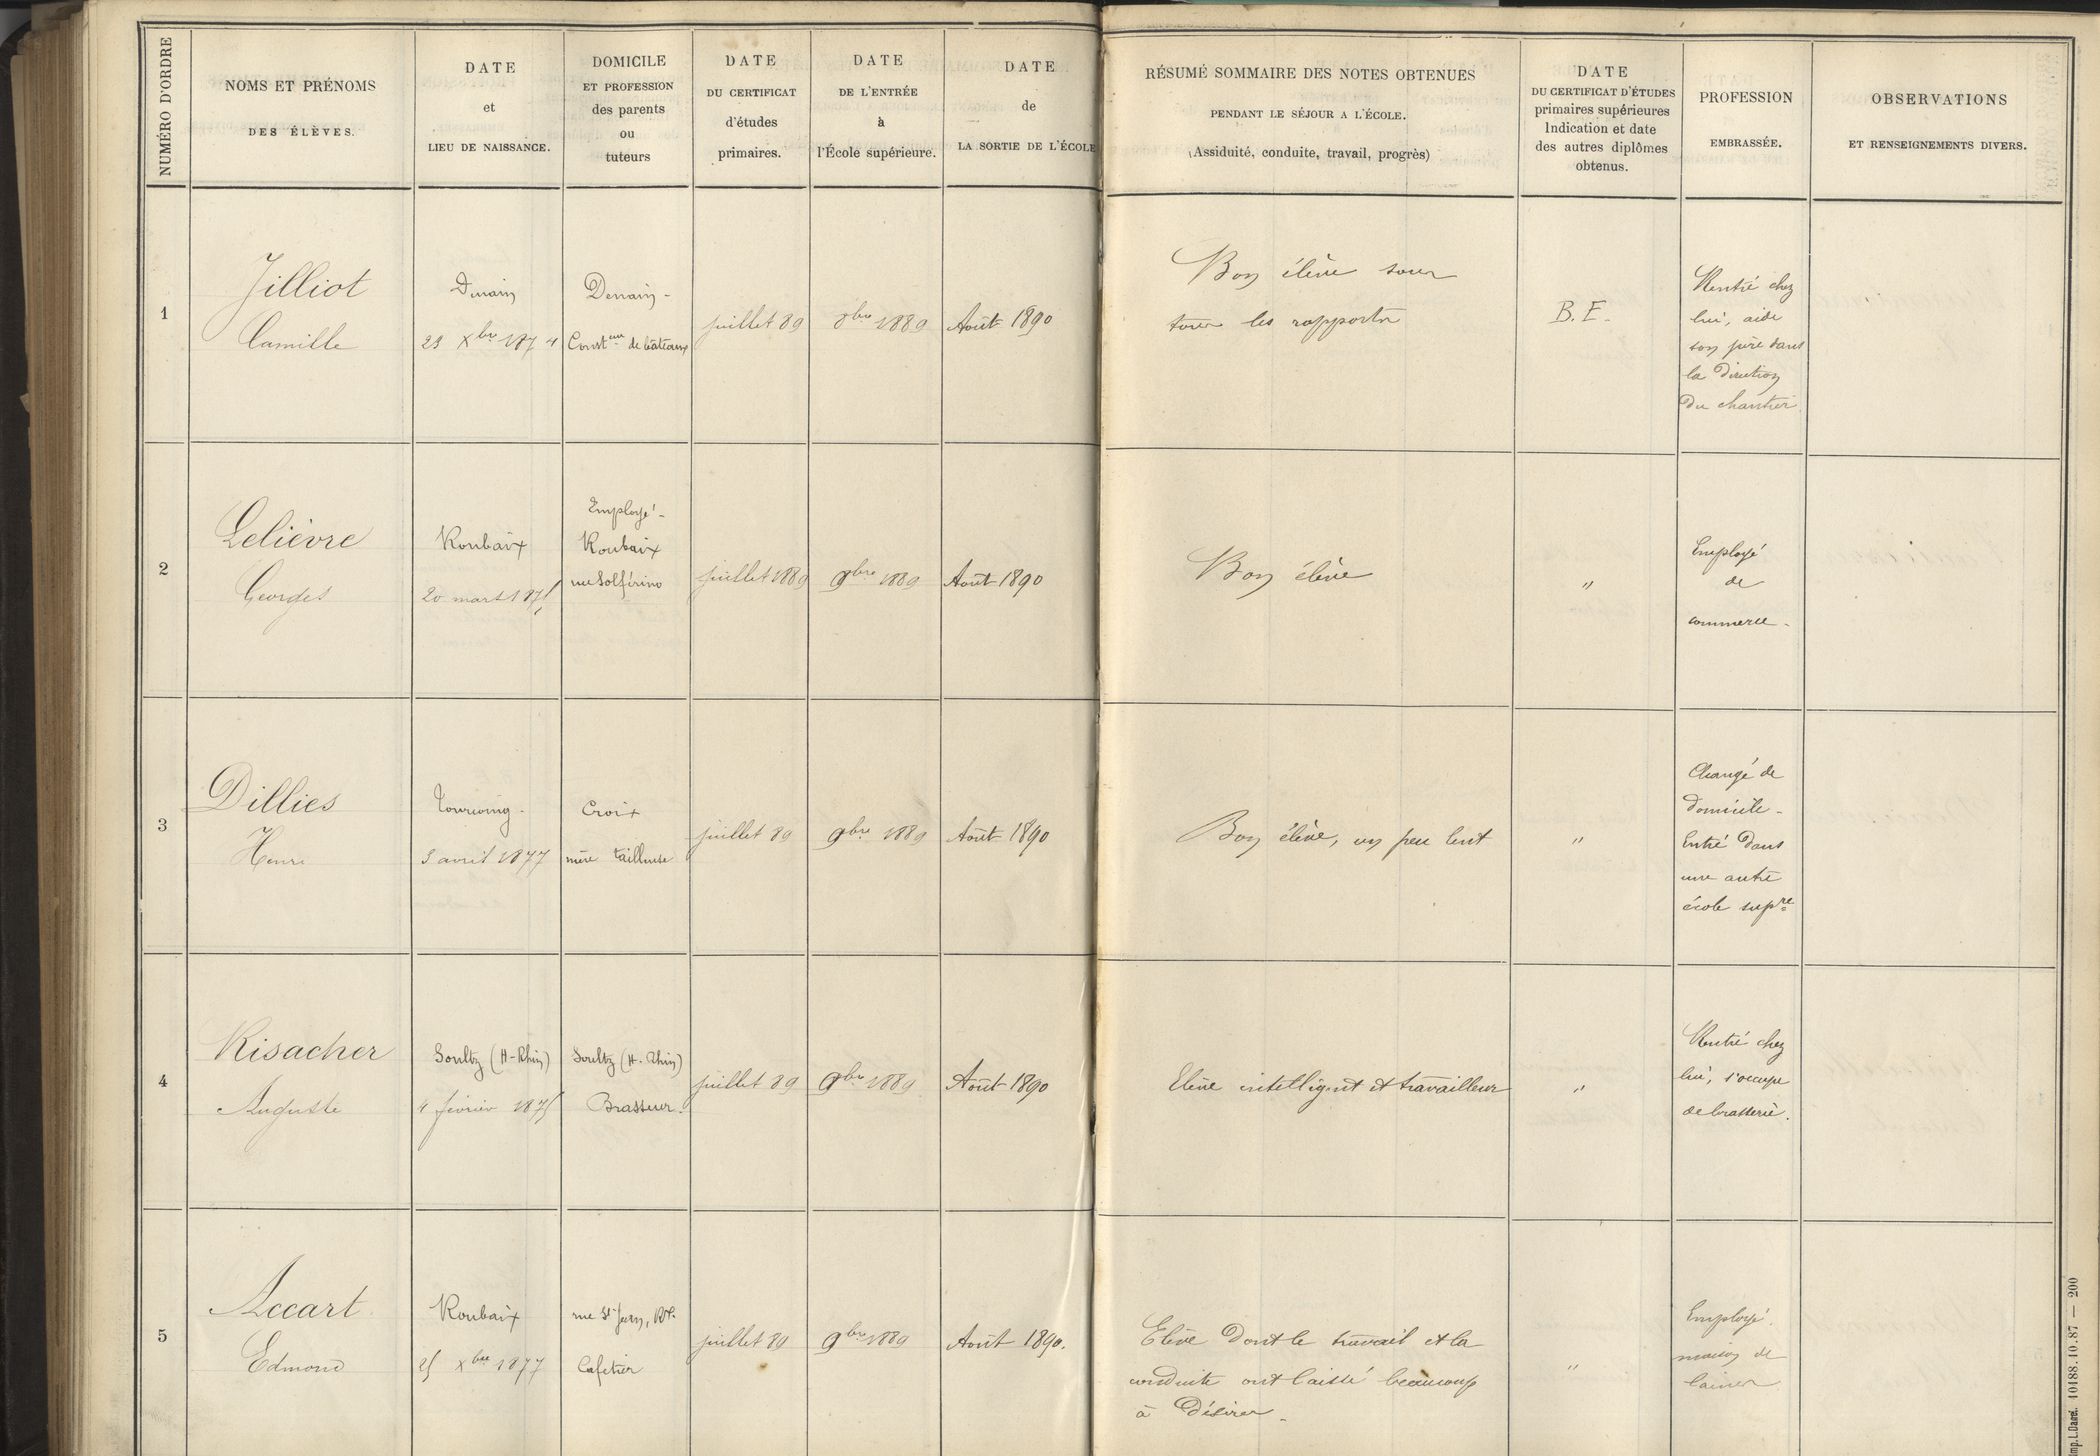 NUMÉRO D'ORDRE
NOMS ET PRÉNOMS
DES ÉLÈVES.
DATE
et
LIEU DE NAISSANCE.
DOMICILE
ET PROFESSION
des parents
ou
tuteurs
DATE
DU CERTIFICAT
d'études
primaires.
DATE
DE L'ENTRÉE
à
l'École supérieure.
DATE
de
LA SORTIE DE L'ÉCOLE
RÉSUMÉ SOMMAIRE DES NOTES OBTENUES
PENDANT LE SÉJOUR A L'ÉCOLE.
(Assiduité, conduite, travail, progrès)
DATE
DU CERTIFICAT D'ÉTUDES
primaires supérieures
Indication et date
des autres diplômes
obtenus.
PROFESSION
EMBRASSÉE.
OBSERVATIONS
ET RENSEIGNEMENTS DIVERS.
1
Jilliot
Camille
Denain
23 Xbre 1874
Denain -
Const eur de bateaux
juillet 89
8bre 1889
Août 1890
Bon élève sous
tous les rapports
B. E.
Rentré chez
lui, aide
son père dans
la direction
du chantier.
2
Lelièvre
Georges
Roubaix
20 mars 1875
Employé -
Roubaix
rue Solférino
juillet 1889
9bre 1889
Août 1890
Bon élève
"
Employé
de
commerce -
3
Dillies
Henri
Tourcoing -
3 avril 1877
Croix
mère tailleuse
juillet 89
9bre 1889
Août 1890
Bon élève, un peu lent
"
Changé de
domicile -
Entré dans
une autre
école supre
4
Risacher
Auguste
Soultz (H-Rhin)
4 février 1875
Soultz (H. Rhin)
Brasseur.
juillet 89
9bre 1889
Août 1890
Elève intelligent et travailleur
"
Rentré chez
lui, s'occupe
de brasserie.
5
Accart
Edmond
Roubaix
25 Xbre 1877
rue St Jean, Rx.
Cafetier
juillet 89
9bre 1889
Août 1890.
Elève dont le travail et la
conduite ont laissé beaucoup
à désirer -
"
Employé.
maison de
laines
Imp. L. Danel. 10188.10.87 — 200